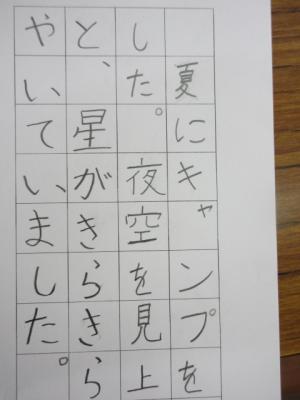 夏にキャンプを
した。夜空を見上
と、星がきらきら
やいていました。